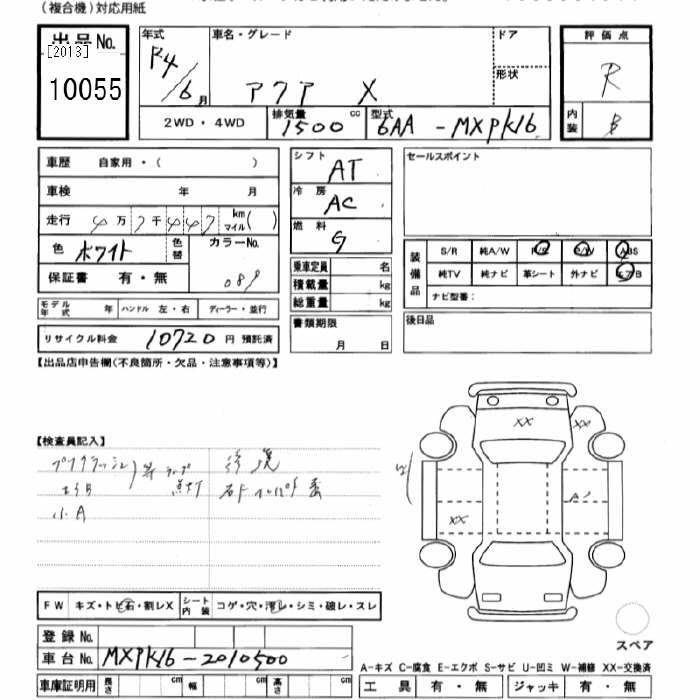 (複合機)対応用紙
出品No.
[2013]
10055
年式
R4/6月
車名・グレード
アクア X
ドア
形状
2WD・4WD
排気量
1500 cc
型式
6AA-MXPK16
評価点
R
内装
B
車歴 自家用・( )
車検 年 月
走行 4万7千447 km マイル( )
色 ホワイト
色替
カラーNo.
089
保証書 有・無
モデル年式 年 ハンドル 左・右 ディーラー・並行
リサイクル料金 10720 円 預託済
シフト AT
冷房 AC
燃料 G
乗車定員 名
積載量 kg
総重量 kg
書類期限
月 日
セールスポイント
装備品
S/R 純A/W P/S P/W ABS
純TV 純ナビ 革シート 外ナビ エアB
ナビ型番:
後日品
【出品店申告欄(不良箇所・欠品・注意事項等)】
【検査員記入】
小A
XX
XX
XX
FW キズ・トビ石・割レX
シート内装 コゲ・穴・汚レ・シミ・破レ・スレ
登録No.
車台No. MXPK16-2010500
車庫証明用 長さ cm 幅 cm 高さ cm
スペア
A-キズ C-腐食 E-エクボ S-サビ U-凹ミ W-補修 XX-交換済
工具 有・無 ジャッキ 有・無